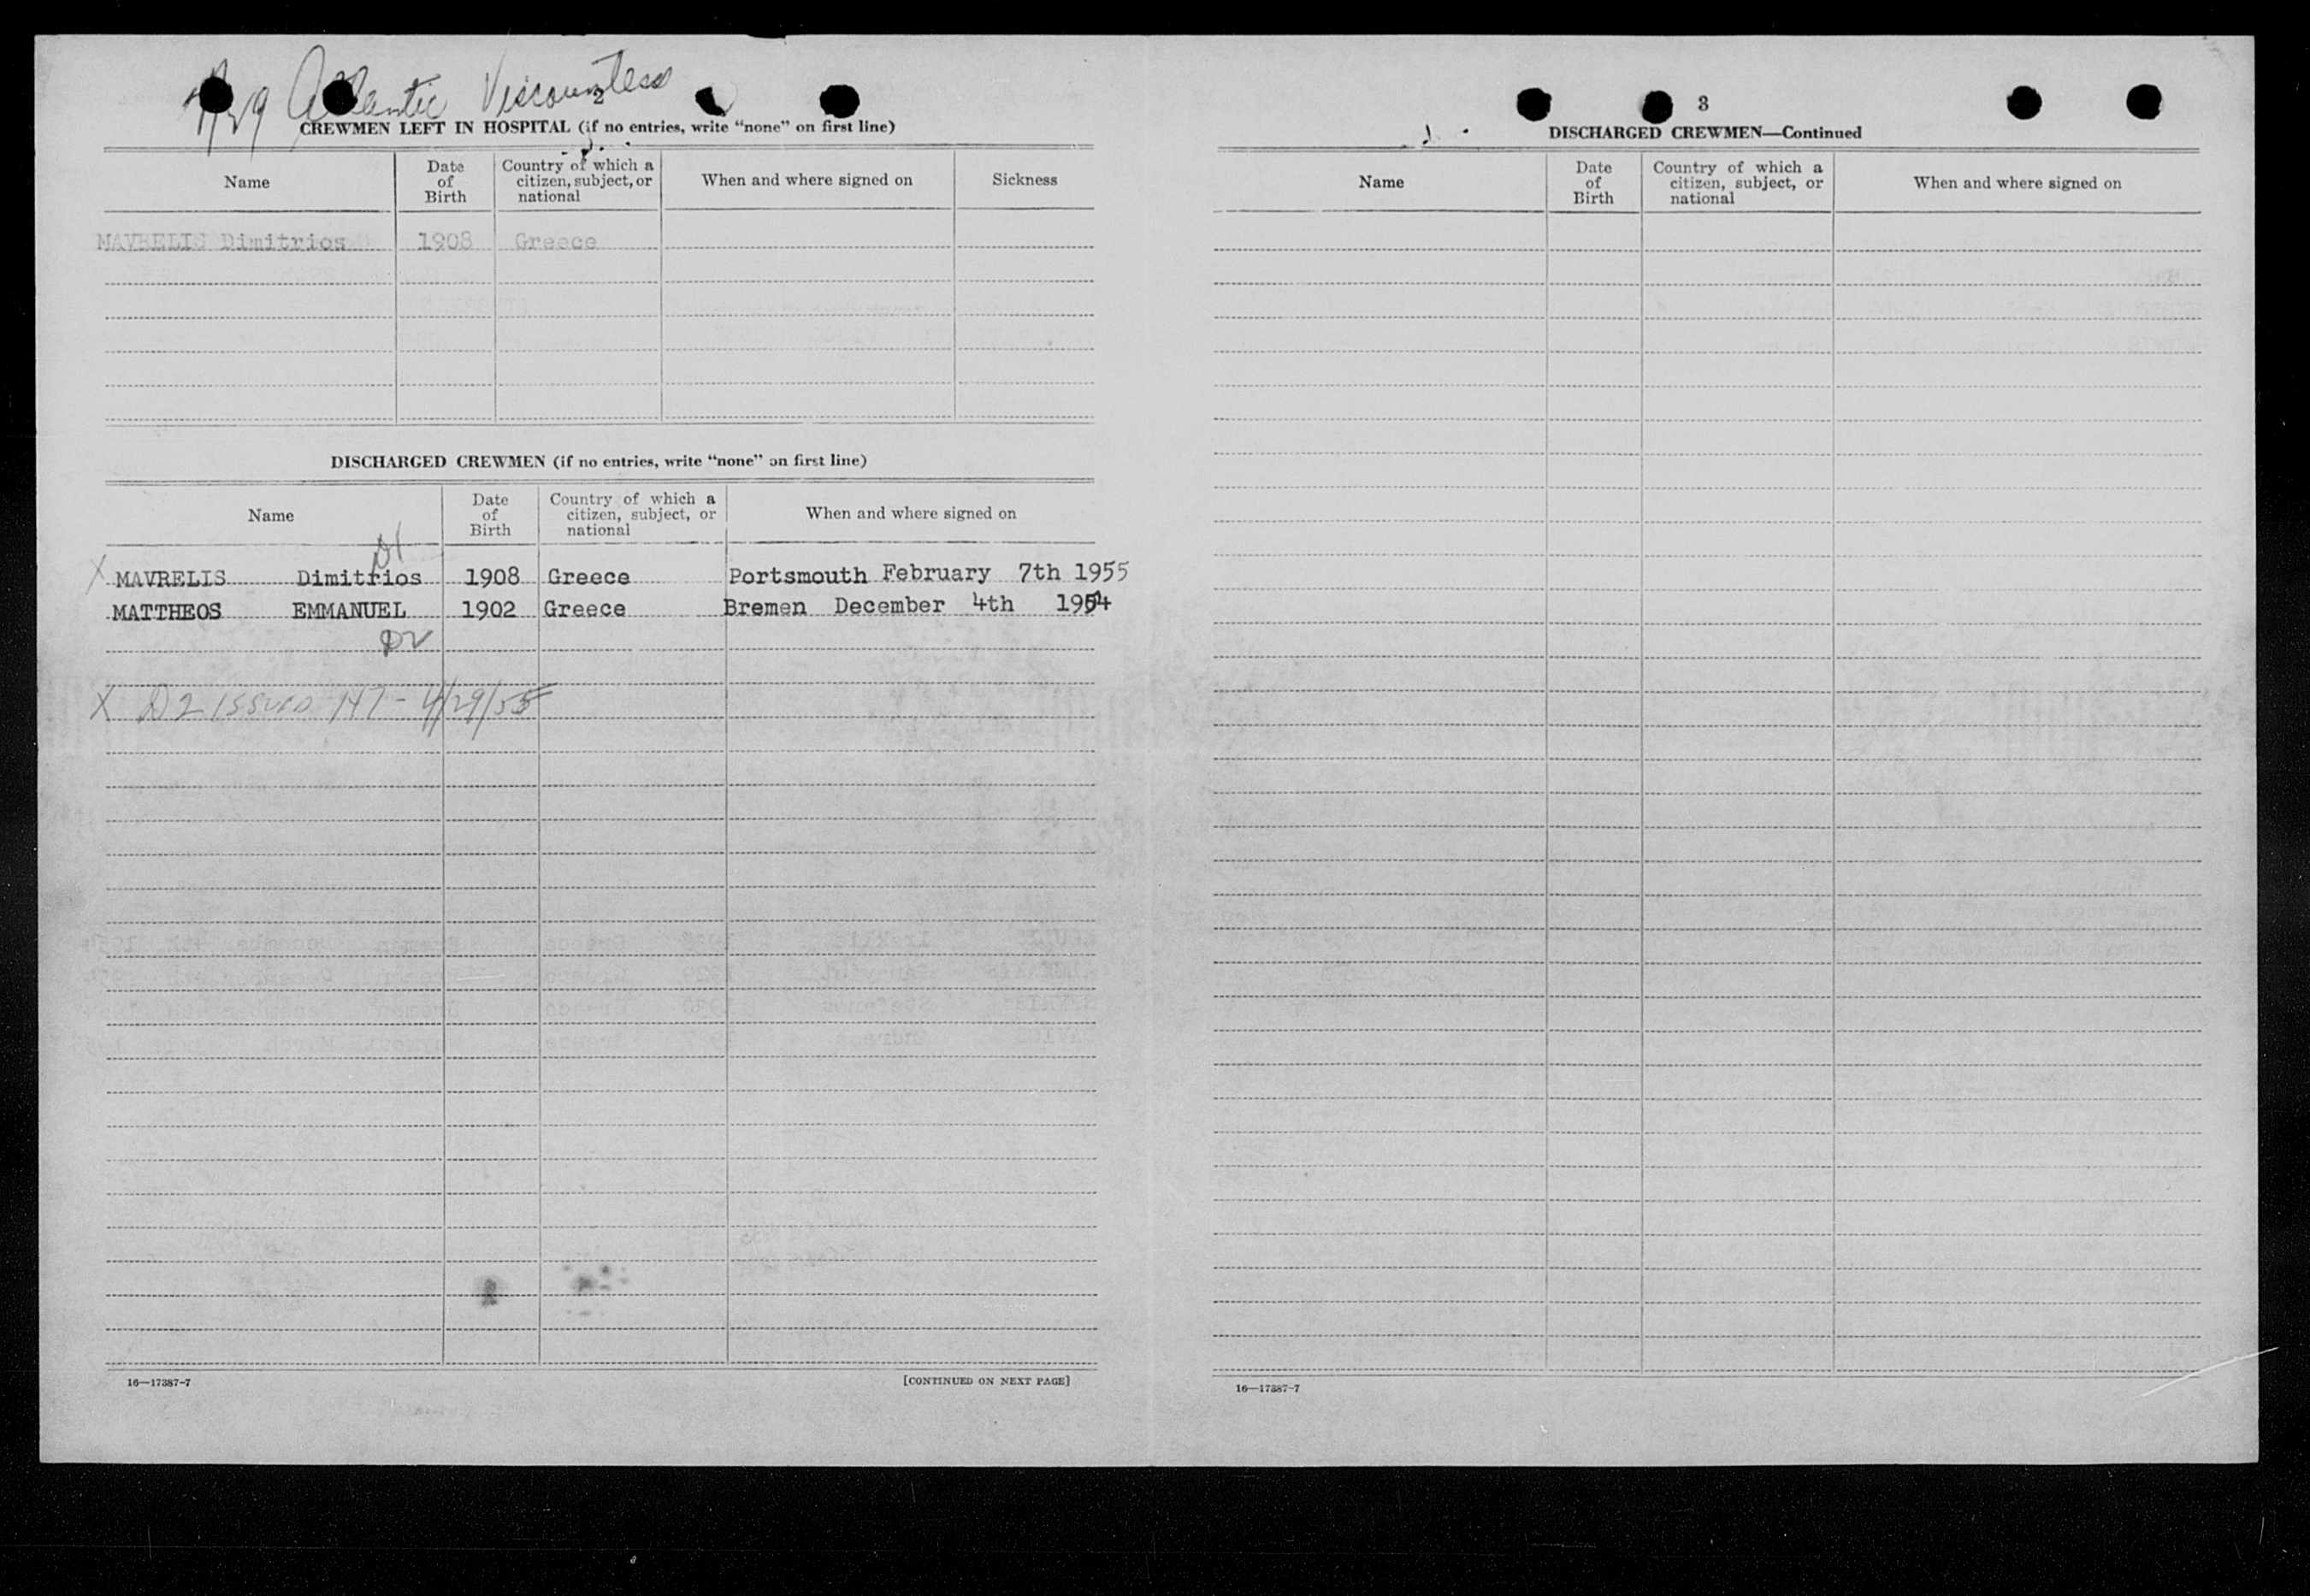 4/29 Atlantic Viscountess
2
CREWMEN LEFT IN HOSPITAL (if no entries, write "none" on first line)
Name
Date of Birth
Country of which a citizen, subject, or national
When and where signed on
Sickness
MAVRELIS Dimitrios 1908 Greece
DISCHARGED CREWMEN (if no entries, write "none" on first line)
Name
Date of Birth
Country of which a citizen, subject, or national
When and where signed on
D1
X MAVRELIS Dimitrios 1908 Greece Portsmouth February 7th 1955
MATTHEOS EMMANUEL 1902 Greece Bremen December 4th 1954
D2
X D2 ISSUED 147 - 4/29/55
16—17387-7
[CONTINUED ON NEXT PAGE]
3
DISCHARGED CREWMEN—Continued
Name
Date of Birth
Country of which a citizen, subject, or national
When and where signed on
16—17387-7